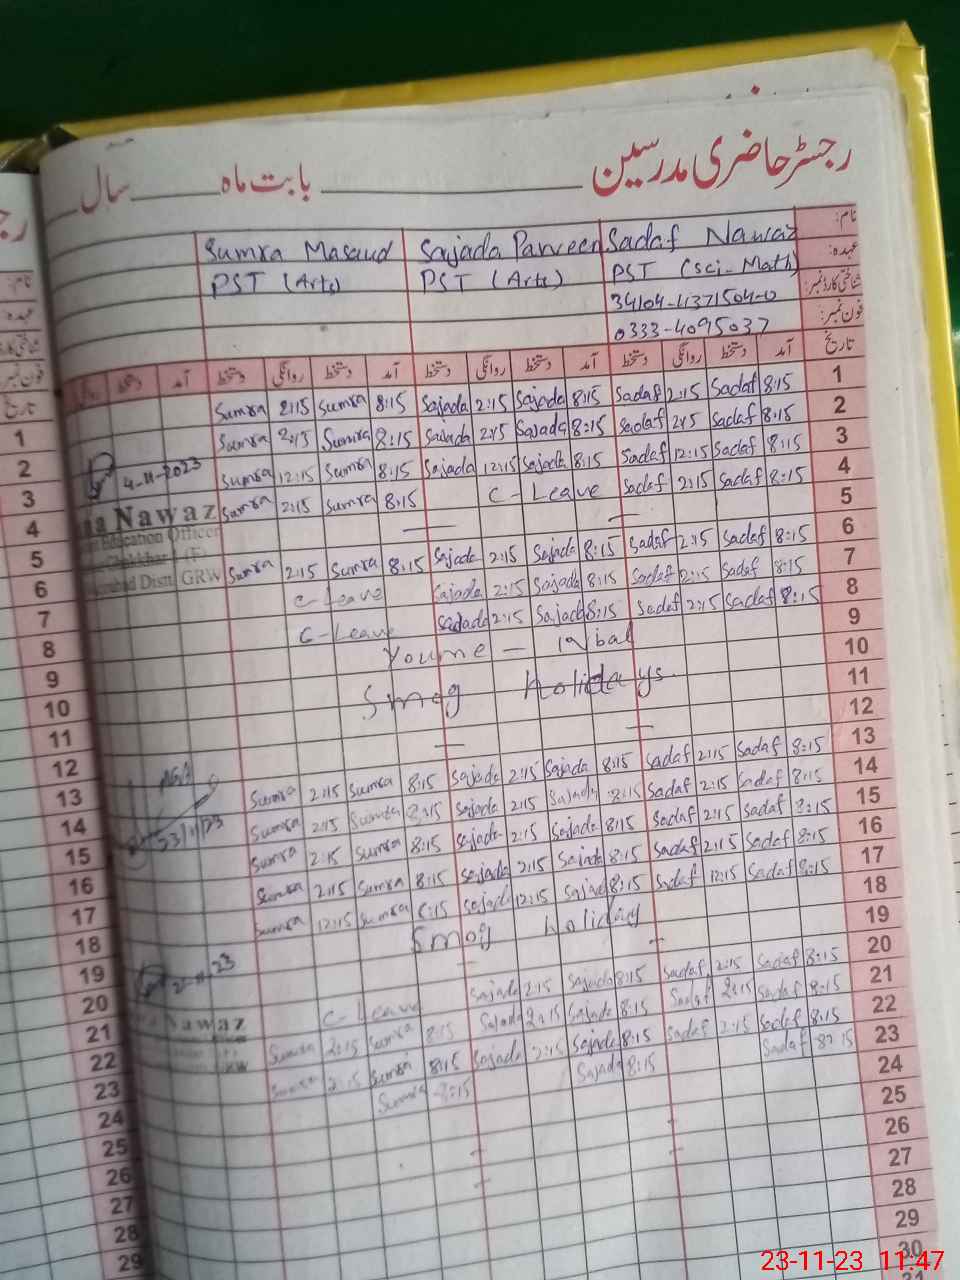 رجسٹر حاضری مدرسین بابت ماہ سال
نام: Sadaf Nawaz Sajada Parveen Sumra Masaud
عہدہ: PST (Sci-Math) PST (Arts) PST (Arts)
شناختی کارڈ نمبر: 34104-4371504-0
فون نمبر: 0333-4095037
تاریخ آمد دستخط روانگی دستخط آمد دستخط روانگی دستخط آمد دستخط روانگی دستخط آمد دستخط
1 Sumra 2:15 Sumra 8:15 Sajada 2:15 Sajada 8:15 Sadaf 2:15 Sadaf 8:15
2 Sumra 2:15 Sumra 8:15 Sajada 2:15 Sajada 8:15 Sadaf 2:15 Sadaf 8:15
3 Sumra 12:15 Sumra 8:15 Sajada 12:15 Sajada 8:15 Sadaf 12:15 Sadaf 8:15
4 Sumra 2:15 Sumra 8:15 C-Leave Sadaf 2:15 Sadaf 8:15
5
6 Sumra 2:15 Sumra 8:15 Sajada 2:15 Sajada 8:15 Sadaf 2:15 Sadaf 8:15
7 C-Leave Sajada 2:15 Sajada 8:15 Sadaf 2:15 Sadaf 8:15
8 C-Leave Sajada 2:15 Sajada 8:15 Sadaf 2:15 Sadaf 8:15
9 Youme - Iqbal
10 Smog holidays
11
12
13 Sumra 2:15 Sumra 8:15 Sajada 2:15 Sajada 8:15 Sadaf 2:15 Sadaf 8:15
14 Sumra 2:15 Sumra 8:15 Sajada 2:15 Sajada 8:15 Sadaf 2:15 Sadaf 8:15
15 Sumra 2:15 Sumra 8:15 Sajada 2:15 Sajada 8:15 Sadaf 2:15 Sadaf 8:15
16 Sumra 2:15 Sumra 8:15 Sajada 2:15 Sajada 8:15 Sadaf 2:15 Sadaf 8:15
17 Sumra 12:15 Sumra 8:15 Sajada 12:15 Sajada 8:15 Sadaf 12:15 Sadaf 8:15
18 Smog holiday
19
20 C-Leave Sajada 2:15 Sajada 8:15 Sadaf 2:15 Sadaf 8:15
21 Sumra 2:15 Sumra 8:15 Sajada 2:15 Sajada 8:15 Sadaf 2:15 Sadaf 8:15
22 Sumra 2:15 Sumra 8:15 Sajada 2:15 Sajada 8:15 Sadaf 2:15 Sadaf 8:15
23 Sumra 8:15 Sajada 8:15 Sadaf 8:15
24
25
26
27
28
29
30
4-11-2023
Nawaz
Education Officer
(F)
Distt. GRW
23/11/23
Nawaz
نام:
عہدہ:
شناختی کارڈ
فون نمبر
تاریخ
1
2
3
4
5
6
7
8
9
10
11
12
13
14
15
16
17
18
19
20
21
22
23
24
25
26
27
28
29
23-11-23 11:47